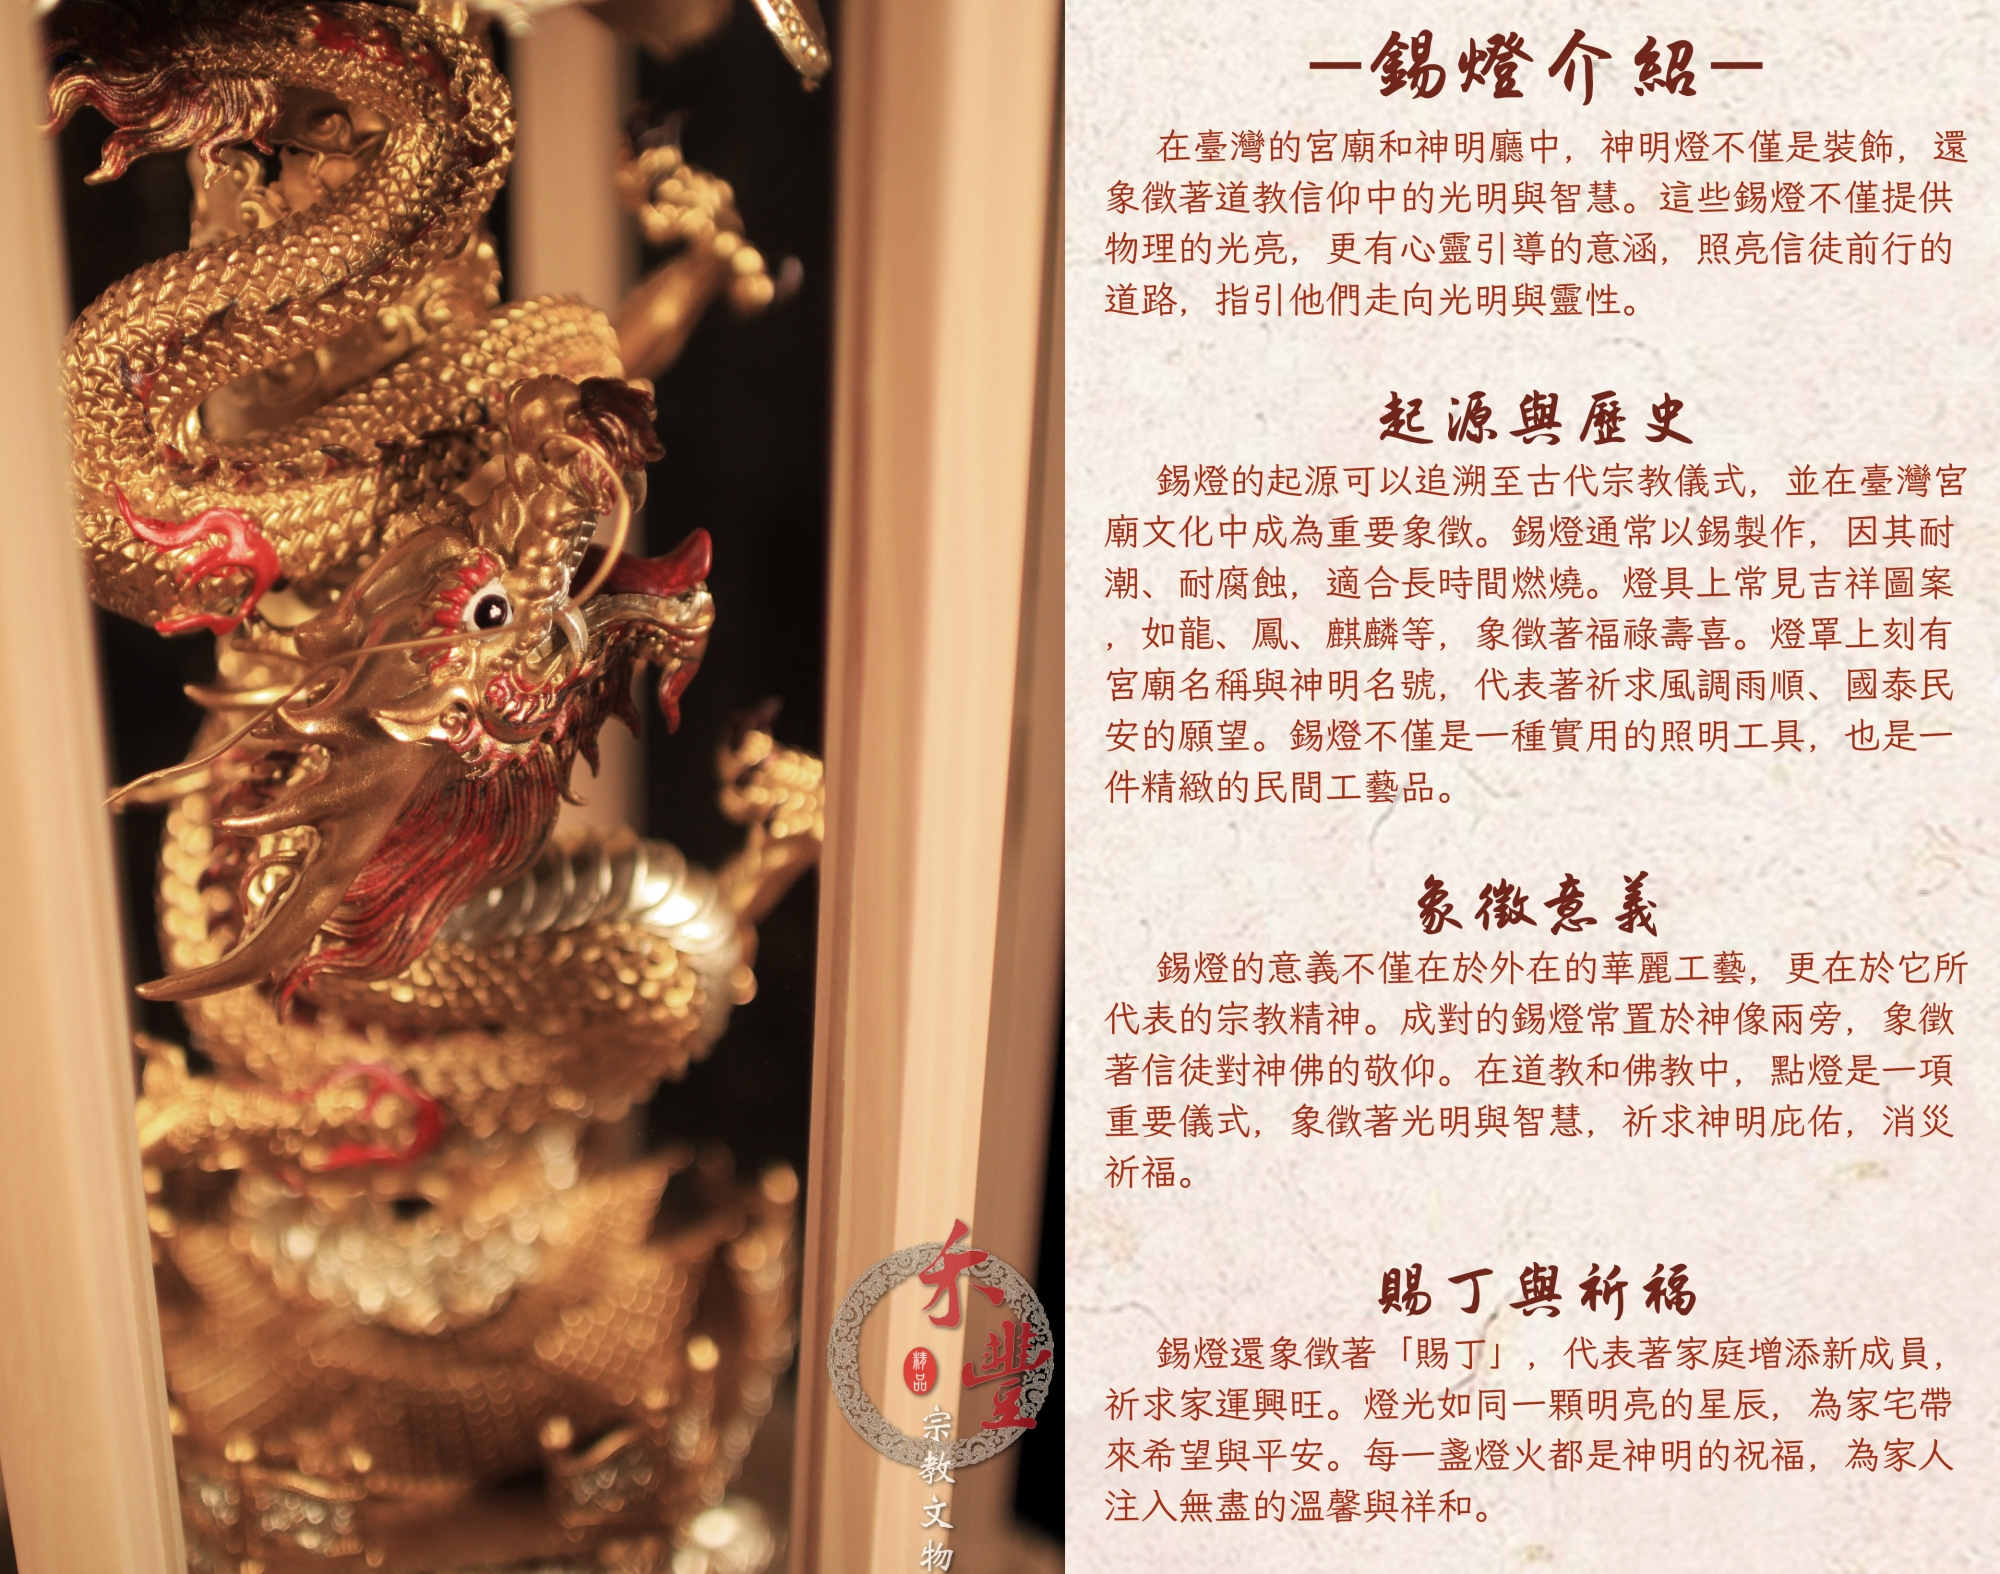 —錫燈介紹—
在臺灣的宮廟和神明廳中，神明燈不僅是裝飾，還
象徵著道教信仰中的光明與智慧。這些錫燈不僅提供
物理的光亮，更有心靈引導的意涵，照亮信徒前行的
道路，指引他們走向光明與靈性。
起源與歷史
錫燈的起源可以追溯至古代宗教儀式，並在臺灣宮
廟文化中成為重要象徵。錫燈通常以錫製作，因其耐
潮、耐腐蝕，適合長時間燃燒。燈具上常見吉祥圖案
，如龍、鳳、麒麟等，象徵著福祿壽喜。燈罩上刻有
宮廟名稱與神明名號，代表著祈求風調雨順、國泰民
安的願望。錫燈不僅是一種實用的照明工具，也是一
件精緻的民間工藝品。
象徵意義
錫燈的意義不僅在於外在的華麗工藝，更在於它所
代表的宗教精神。成對的錫燈常置於神像兩旁，象徵
著信徒對神佛的敬仰。在道教和佛教中，點燈是一項
重要儀式，象徵著光明與智慧，祈求神明庇佑，消災
祈福。
賜丁與祈福
錫燈還象徵著「賜丁」，代表著家庭增添新成員，
祈求家運興旺。燈光如同一顆明亮的星辰，為家宅帶
來希望與平安。每一盞燈火都是神明的祝福，為家人
注入無盡的溫馨與祥和。
禾豐
精品
宗教文物